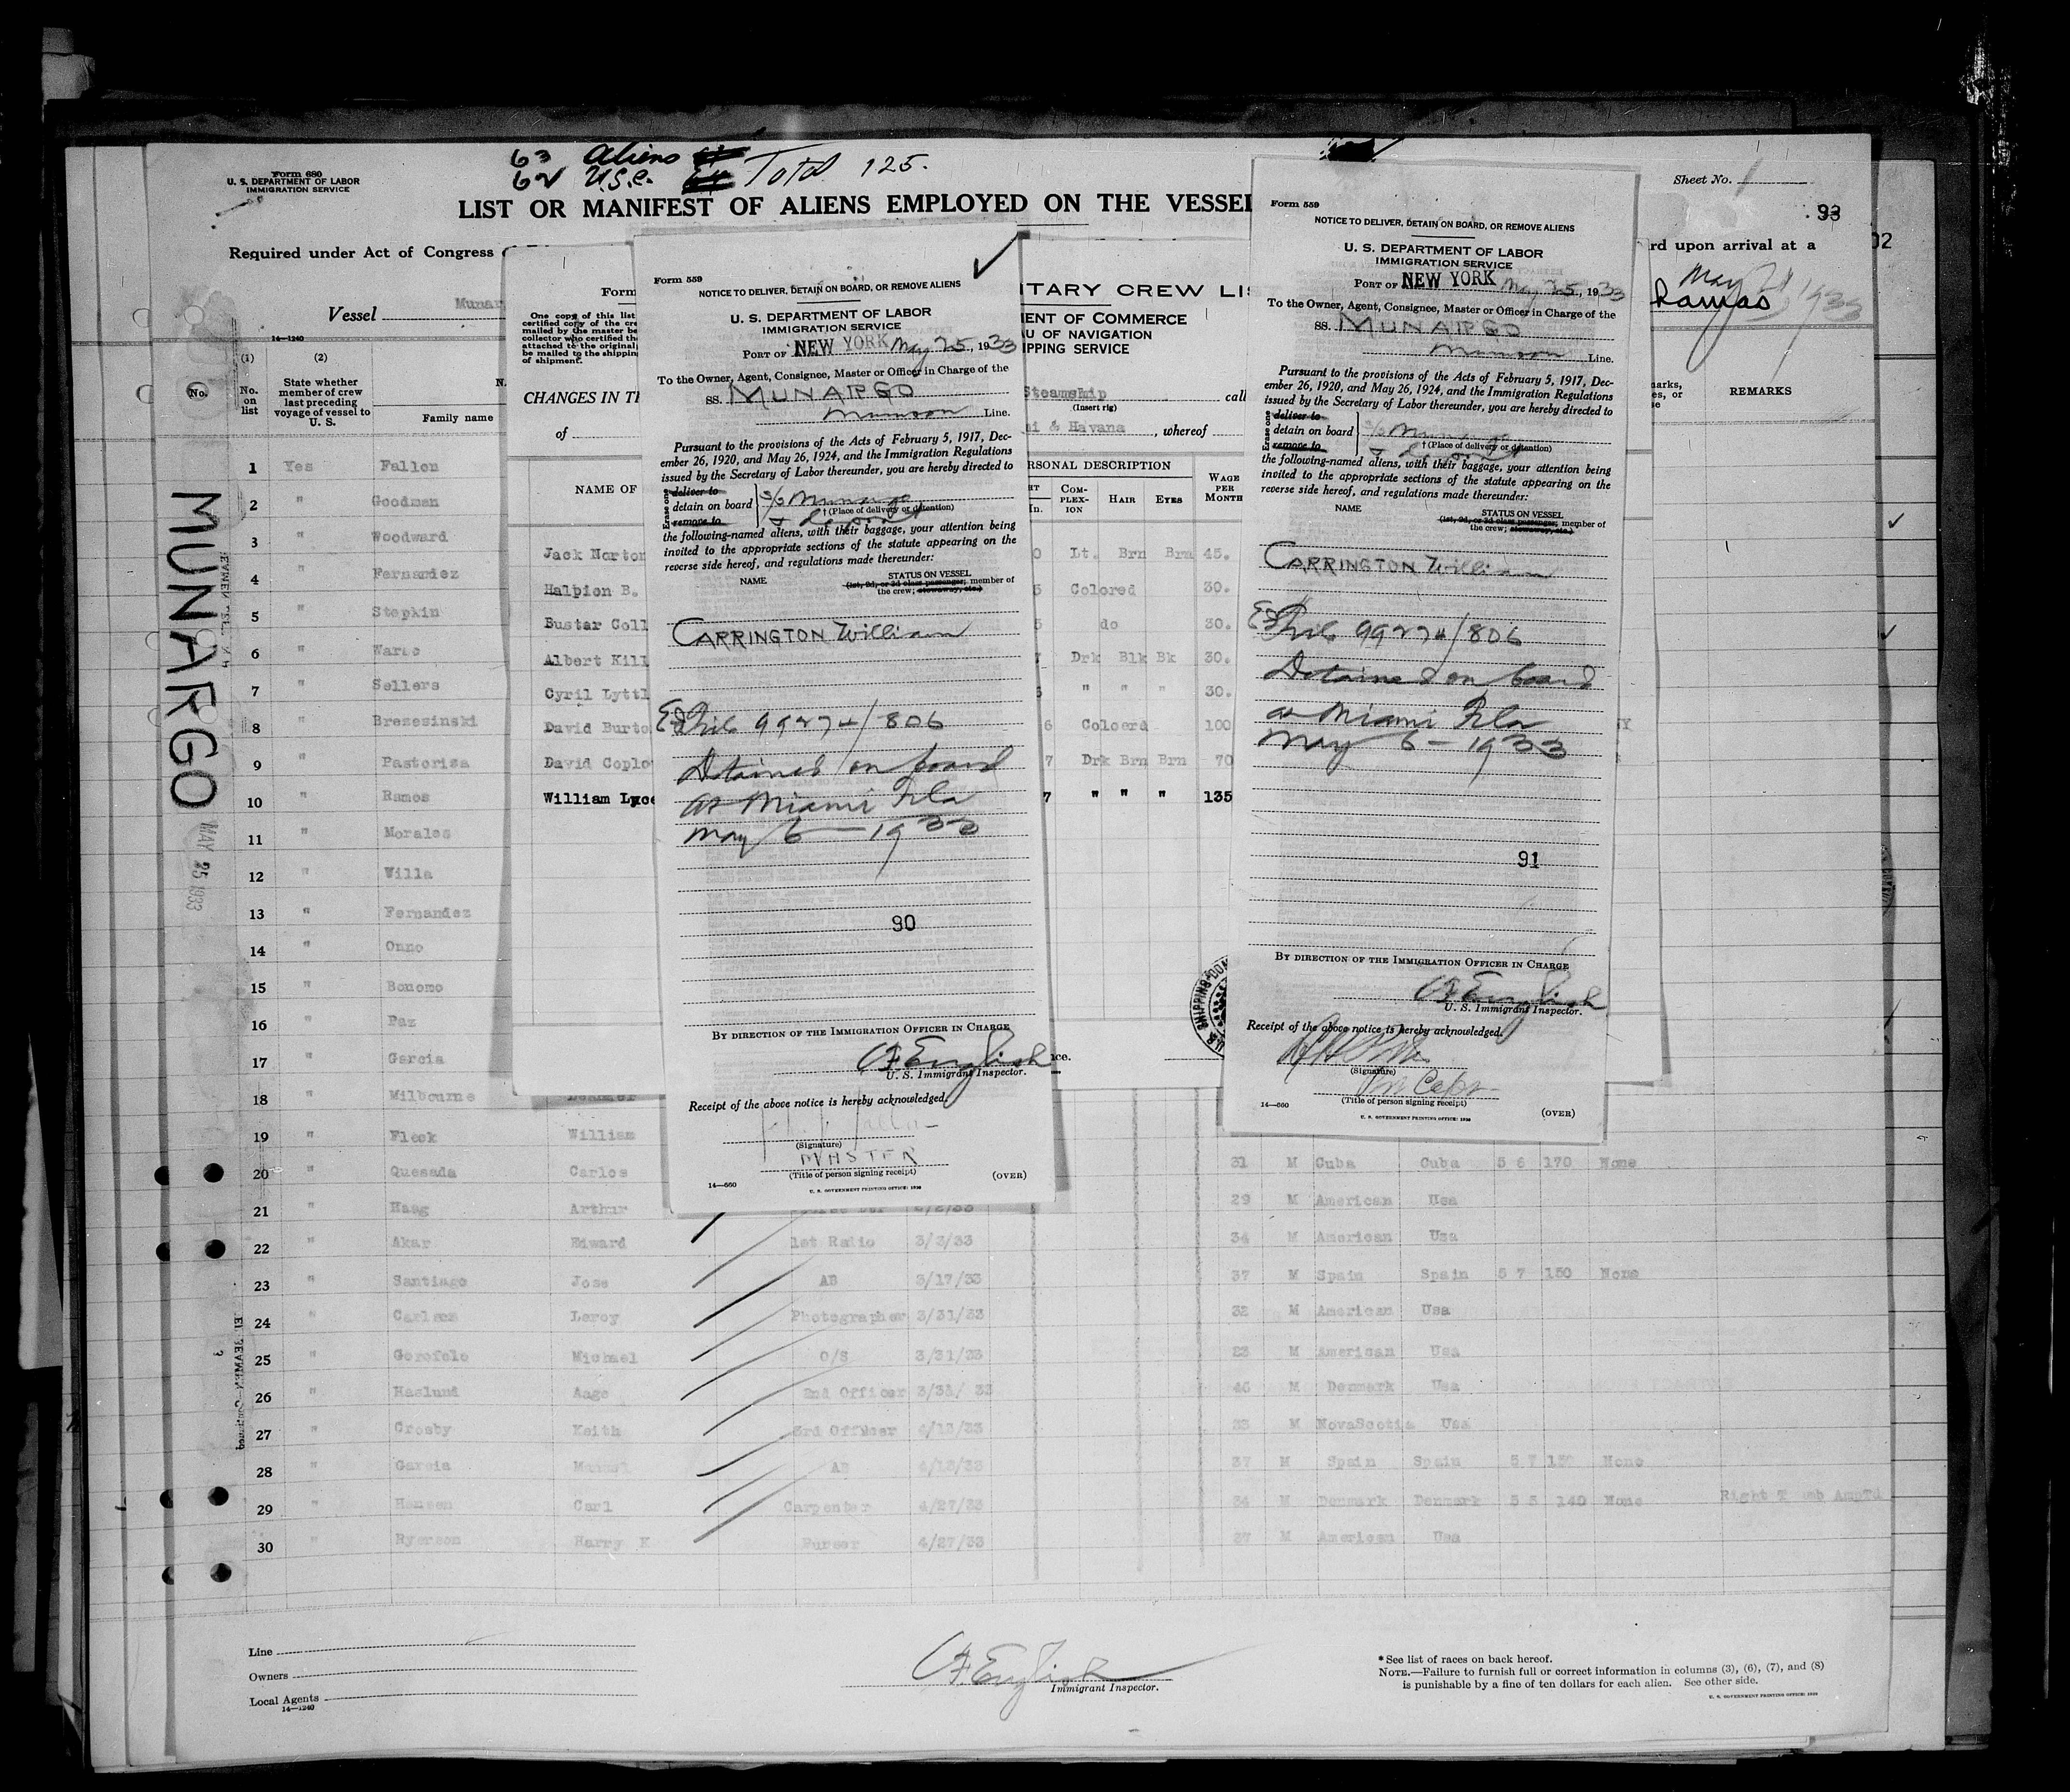 63 Aliens
62 U.S.C. Total 125.
Form 680
U. S. DEPARTMENT OF LABOR
IMMIGRATION SERVICE
Sheet No. 1
93
LIST OR MANIFEST OF ALIENS EMPLOYED ON THE VESSEL
Required under Act of Congress
rd upon arrival at a
02
Vessel Munar
hamas May 1933
14—1240
(1) (2)
No.
No. on list
State whether member of crew last preceding voyage of vessel to U. S.
Family name
REMARKS
MUNARGO
MAY 25 1933
1 Yes Fallon
2 " Goodman
3 " Woodward
4 " Fernandez
5 " Stepkin
6 "
7 " Sellers
8 " Brezezinski
9 " Pastoriza
10 " Ramos
11 " Morales
12 " Villa
13 " Fernandez
14 " Onno
15 " Bonomo
16 " Paz
17 " Garcia
18 " Milbourne
19 " Fleck William
20 " Quesada Carlos 31 M Cuba Cuba 5 6 170 None
21 " Haag Arthur 29 M American Usa
22 " Akar Edward 1st Radio 3/3/33 34 M American Usa
23 " Santiago Jose AB 3/17/33 37 M Spain Spain 5 7 150 None
24 " Carlsen Leroy Photographer 3/31/33 32 M American Usa
25 " Gorofolo Michael O/S 3/31/33 23 M American Usa
26 " Haslund Aage 2nd Officer 3/31/ 33 M Denmark Usa
27 " Crosby Keith 3rd Officer 4/13/33 33 M NovaScotia Usa
28 " Garcia Manuel AB 4/13/33 37 M Spain Spain 5 7 150 None
29 " Hansen Carl Carpenter 4/27/33 34 M Denmark Denmark 5 5 140 None Right
30 " Ryerson Harry K Purser 4/27/33 37 M American Usa
Line
Owners
Local Agents
14—1240
CF English
Immigrant Inspector.
* See list of races on back hereof.
NOTE.—Failure to furnish full or correct information in columns (3), (6), (7), and (8)
is punishable by a fine of ten dollars for each alien. See other side.
U. S. GOVERNMENT PRINTING OFFICE: 1930
Form
One copy of this list
certified copy of the cre
mailed by the master be
collector who certified the
attached to the original,
be mailed to the shipping
of shipment.
TARY CREW LIS
ENT OF COMMERCE
U OF NAVIGATION
IPPING SERVICE
CHANGES IN TH
Steamship call
(Insert rig)
of
mi & Havana , whereof
NAME OF
RSONAL DESCRIPTION
COMPLEXION HAIR EYES WAGE PER MONTH
Jack Norton 0 Lt. Brn Brn 45.
Halpion B. 5 Colored 30.
Bustar Coll 5 do 30.
Albert Kill 7 Drk Blk Bk 30.
Cyril Lyttl " " " 30.
David Burto 6 Coloerd 100
David Coplo 7 Drk Brn Brn 70
William Lyce 7 " " " 135
Form 559
NOTICE TO DELIVER, DETAIN ON BOARD, OR REMOVE ALIENS
U. S. DEPARTMENT OF LABOR
IMMIGRATION SERVICE
PORT OF NEW YORK May 25, 1933
To the Owner, Agent, Consignee, Master or Officer in Charge of the
SS. MUNARGO
Munson Line.
Pursuant to the provisions of the Acts of February 5, 1917, Dec-
ember 26, 1920, and May 26, 1924, and the Immigration Regulations
issued by the Secretary of Labor thereunder, you are hereby directed to
Erase one
deliver to
detain on board S/S Munargo
† (Place of delivery or detention)
remove to & deport
the following-named aliens, with their baggage, your attention being
invited to the appropriate sections of the statute appearing on the
reverse side hereof, and regulations made thereunder:
NAME STATUS ON VESSEL
(1st, 2d, or 3d class passenger; member of
the crew; stowaway, etc.)
CARRINGTON William
File 99274/806
Detained on board
at Miami Fla
May 6 — 1933
90
BY DIRECTION OF THE IMMIGRATION OFFICER IN CHARGE
CF English
U. S. Immigrant Inspector.
Receipt of the above notice is hereby acknowledged.
(Signature)
MASTER
(Title of person signing receipt)
14—660
(OVER)
U. S. GOVERNMENT PRINTING OFFICE: 1930
Form 559
NOTICE TO DELIVER, DETAIN ON BOARD, OR REMOVE ALIENS
U. S. DEPARTMENT OF LABOR
IMMIGRATION SERVICE
PORT OF NEW YORK May 25, 1933
To the Owner, Agent, Consignee, Master or Officer in Charge of the
SS. MUNARGO
Munson Line.
Pursuant to the provisions of the Acts of February 5, 1917, Dec-
ember 26, 1920, and May 26, 1924, and the Immigration Regulations
issued by the Secretary of Labor thereunder, you are hereby directed to
Erase one
deliver to
detain on board
† (Place of delivery or detention)
remove to & deport
the following-named aliens, with their baggage, your attention being
invited to the appropriate sections of the statute appearing on the
reverse side hereof, and regulations made thereunder:
NAME STATUS ON VESSEL
(1st, 2d, or 3d class passenger; member of
the crew; stowaway, etc.)
CARRINGTON William
File 99274/806
Detained on board
at Miami Fla
May 6 — 1933
91
BY DIRECTION OF THE IMMIGRATION OFFICER IN CHARGE
CF English
U. S. Immigrant Inspector.
Receipt of the above notice is hereby acknowledged.
(Signature)
(Title of person signing receipt)
14—660
(OVER)
U. S. GOVERNMENT PRINTING OFFICE: 1930